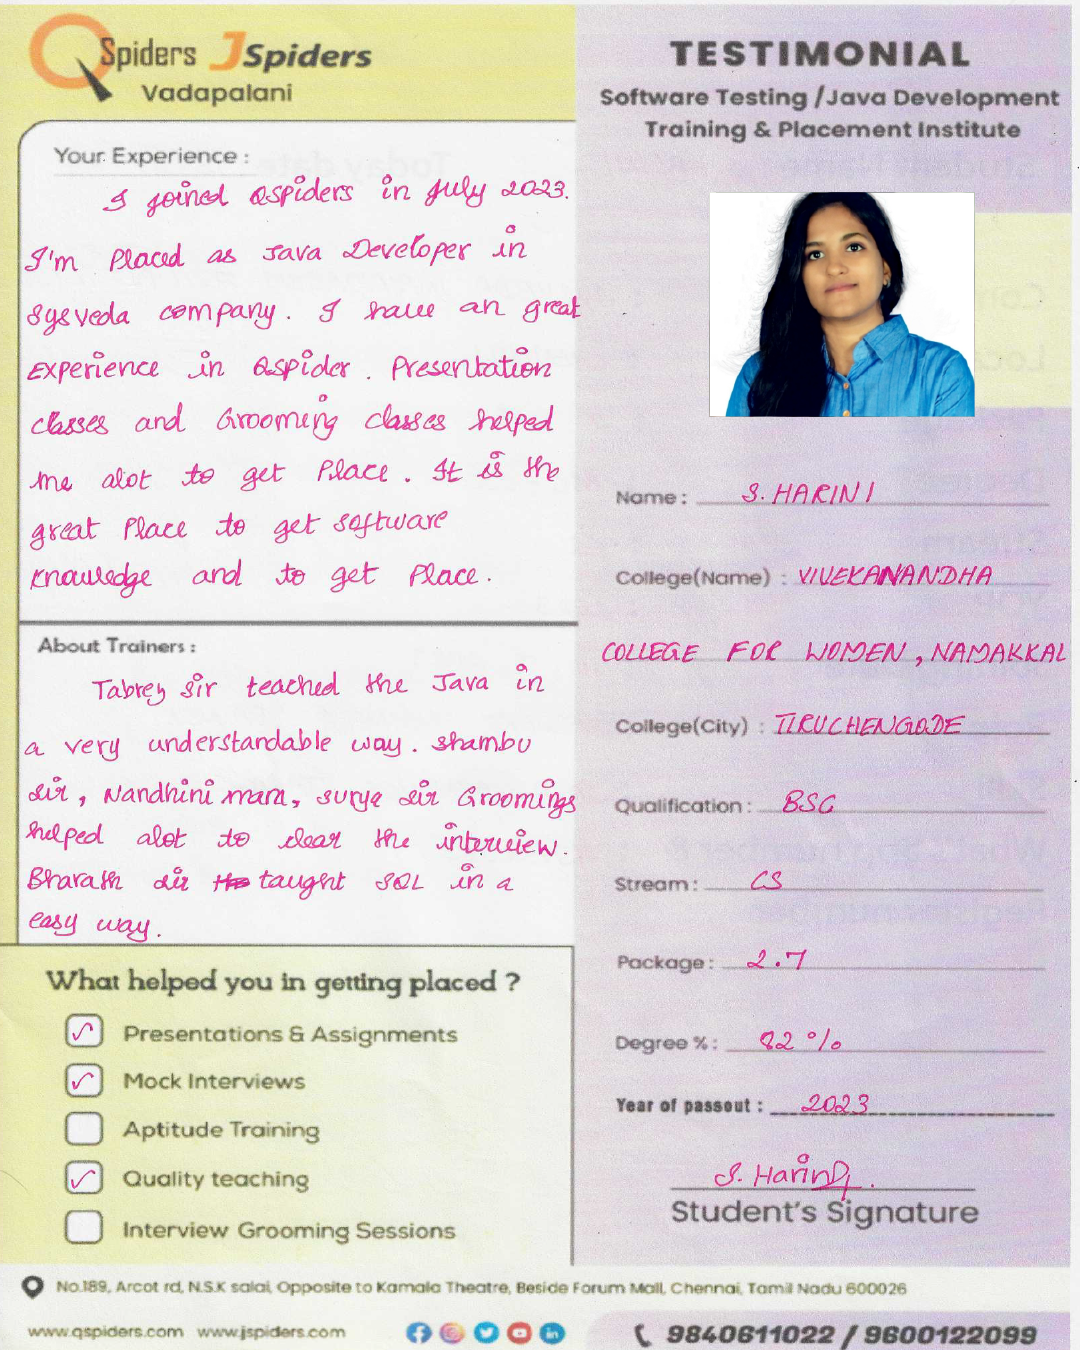 QSpiders JSpiders
Vadapalani
TESTIMONIAL
Software Testing /Java Development
Training & Placement Institute
Your Experience :
I joined Qspiders in July 2023.
I'm Placed as Java Developer in
Sysveda company. I have an great
Experience in Qspider. Presentation
classes and Grooming classes helped
me alot to get Place. It is the
great Place to get software
knowledge and to get Place.
About Trainers :
Tabrey sir teached the Java in
a very understandable way. Shambu
sir, Nandhini mam, surya sir Groomings
helped alot to clear the interview.
Bharath sir taught SQL in a
easy way.
What helped you in getting placed ?
Presentations & Assignments
Mock Interviews
Aptitude Training
Quality teaching
Interview Grooming Sessions
Name : S. HARINI
College(Name) : VIVEKANANDHA
COLLEGE FOR WOMEN, NAMAKKAL
College(City) : TIRUCHENGODE
Qualification : BSC
Stream : CS
Package : 2.7
Degree % : 82 %
Year of passout : 2023
S. Harini
Student's Signature
No.189, Arcot rd, N.S.K salai, Opposite to Kamala Theatre, Beside Forum Mall, Chennai, Tamil Nadu 600026
www.qspiders.com www.jspiders.com
9840611022 / 9600122099